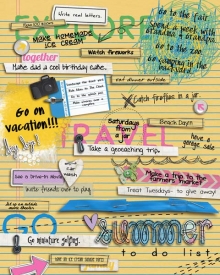 Write real letters.
Go to the Fair
Spend a week with
Grandma & Grandpa.
Go to the zoo.
Go camping in the
MAKE HOMEMADE
ICE CREAM
Watch fireworks
together
Make dad a cool birthday cake.
eat dinner outside.
Catch fireflies in a jar.
Go on
vacation!!!
Saturdays
Beach Days!!
Have a
garage sale
TRAVEL
Take a geocaching trip.
Go to a Drive-In Movie
Make a trip to the
Farmers Market
Invite friends over to play
Treat Tuesdays- to give away!
GO
Go miniature golfing.
summer
to do list